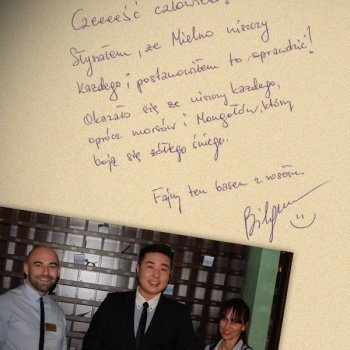 Czeeeeść człowieku,
Słyszałem, że Mielno niszczy
każdego i postanowiłem to sprawdzić!
Okazało się że niszczy każdego,
oprócz morsów i Mongołów, który
boją się żółtego śniegu.
Fajny ten basen z rosołem.